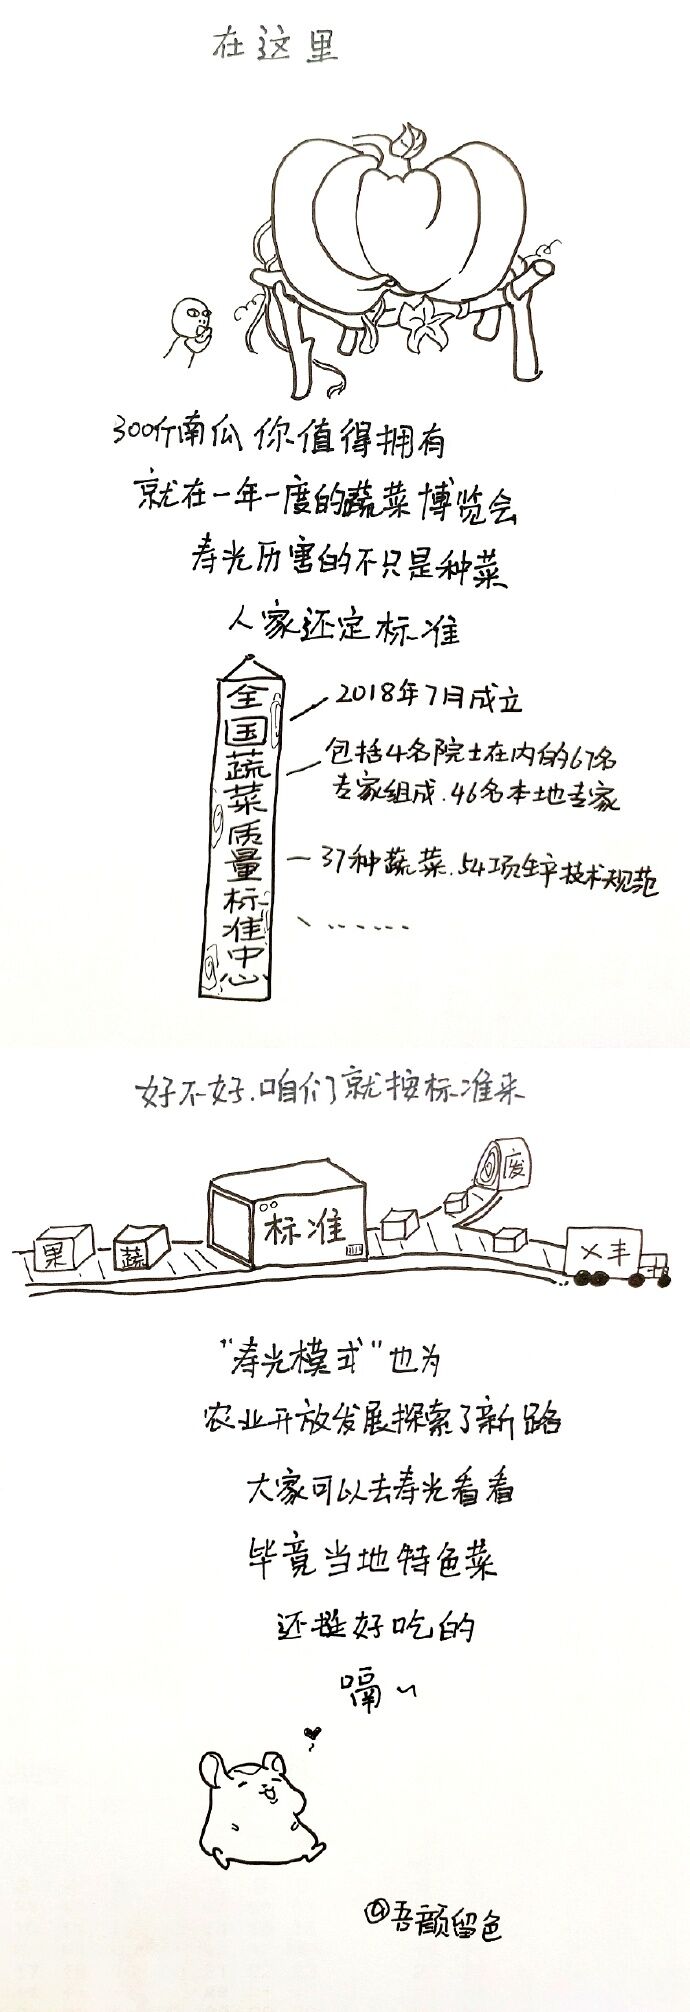 在这里
300斤南瓜 你值得拥有
就在一年一度的蔬菜博览会
寿光厉害的不只是种菜
人家还定标准
全国蔬菜质量标准中心
2018年7月成立
包括4名院士在内的67名
专家组成.46名本地专家
37种蔬菜.54项生产技术规范
......
好不好.咱们就按标准来
废
标准
果
蔬
X丰
"寿光模式"也为
农业开放发展探索了新路
大家可以去寿光看看
毕竟当地特色菜
还挺好吃的
嗝~
@吾颜留色